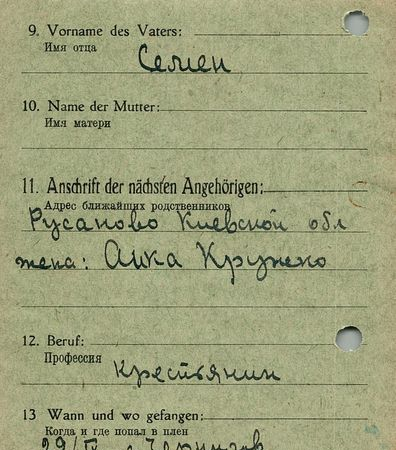 9. Vorname des Vaters:
Имя отца
Семен
10. Name der Mutter:
Имя матери
11. Anschrift der nächsten Angehörigen:
Адрес ближайших родственников
Русаново Киевской обл
жена:
12. Beruf:
Профессия
крестьянин
13 Wann und wo gefangen:
Когда и где попал в плен